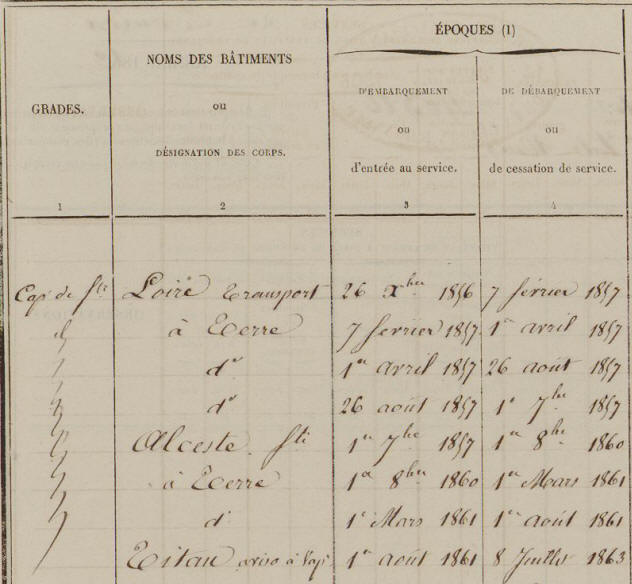 ÉPOQUES (1)
GRADES.
NOMS DES BÂTIMENTS
ou
DÉSIGNATION DES CORPS.
D'EMBARQUEMENT
ou
d'entrée au service.
DE DÉBARQUEMENT
ou
de cessation de service.
1 2 3 4
Capᵉ de fᵗᵉ Loire transport 26 Xbre 1856 7 février 1857
dᵒ à Terre 7 février 1857 1er avril 1857
dᵒ 1er avril 1857 26 août 1857
dᵒ 26 août 1857 1er 7bre 1857
Alceste fᵗᵉ 1er 7bre 1857 1er 8bre 1860
à Terre 1er 8bre 1860 1er Mars 1861
dᵒ 1er Mars 1861 1er août 1861
Titan aviso à Vapʳ 1er août 1861 8 Juillet 1863